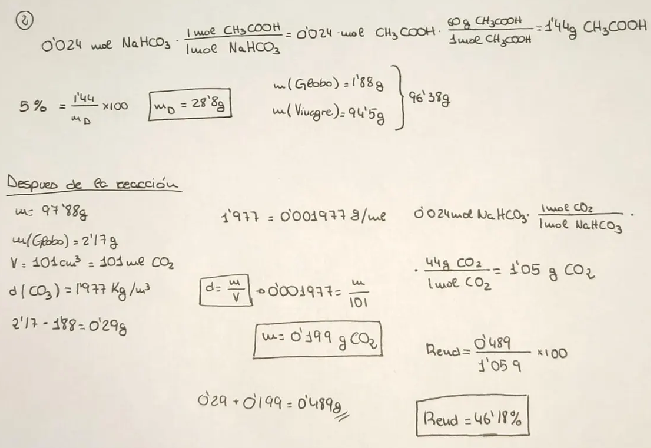 ②
0'024 mol NaHCO3 · 1mol CH3COOH / 1mol NaHCO3 = 0'024 mol CH3COOH · 60 g CH3COOH / 1mol CH3COOH = 1'44g CH3COOH
5% = 1'44 / mD x100
mD = 28'8g
m(Globo) = 1'88g
m(Vinagre) = 94'5g
96'38g
Despues de la reacción
m = 97'88g
m(Globo) = 2'17g
V = 101cm³ = 101 ml CO2
d(CO2) = 1'977 Kg/m³
2'17 - 1'88 = 0'29g
1'977 = 0'001977 g/ml
d = m / V → 0'001977 = m / 101
m = 0'199 g CO2
0'29 + 0'199 = 0'489g
0'024mol NaHCO3 · 1mol CO2 / 1mol NaHCO3 ·
· 44g CO2 / 1mol CO2 = 1'05 g CO2
Rend = 0'489 / 1'059 x100
Rend = 46'18%